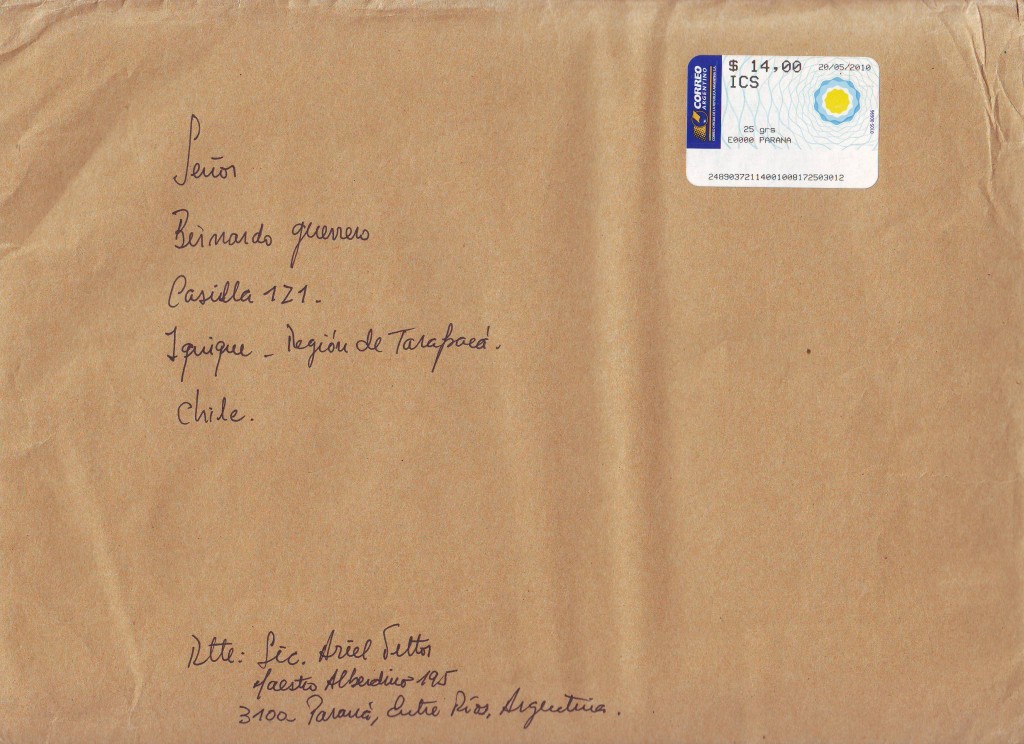 $ 14,00
20/05/2010
ICS
CORREO
ARGENTINO
25 grs
E0000 PARANA
24890372114001008172503012
Señor
Bernardo guerrero
Casilla 121.
Iquique - Región de Tarapacá.
Chile.
Rtte: Lic. Ariel Vettor
Maestro Alberdino 195
3100 Paraná, Entre Ríos, Argentina.